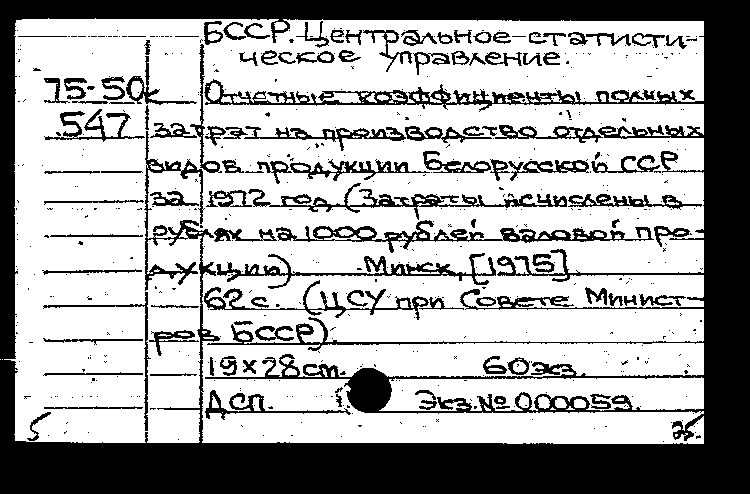 БССР. Центральное статисти-
ческое управление.
75-50к Отчетные коэффициенты полных
547 затрат на производство отдельных
видов продукции Белорусской ССР
за 1972 год (Затраты исчислены в
рублях на 1000 рублей валовой про-
дукции). Минск, [1975].
62 с. (ЦСУ при Совете Минист-
ров БССР).
19×28cm. 60 экз.
ДСП. Экз. № 000059.
5 25.